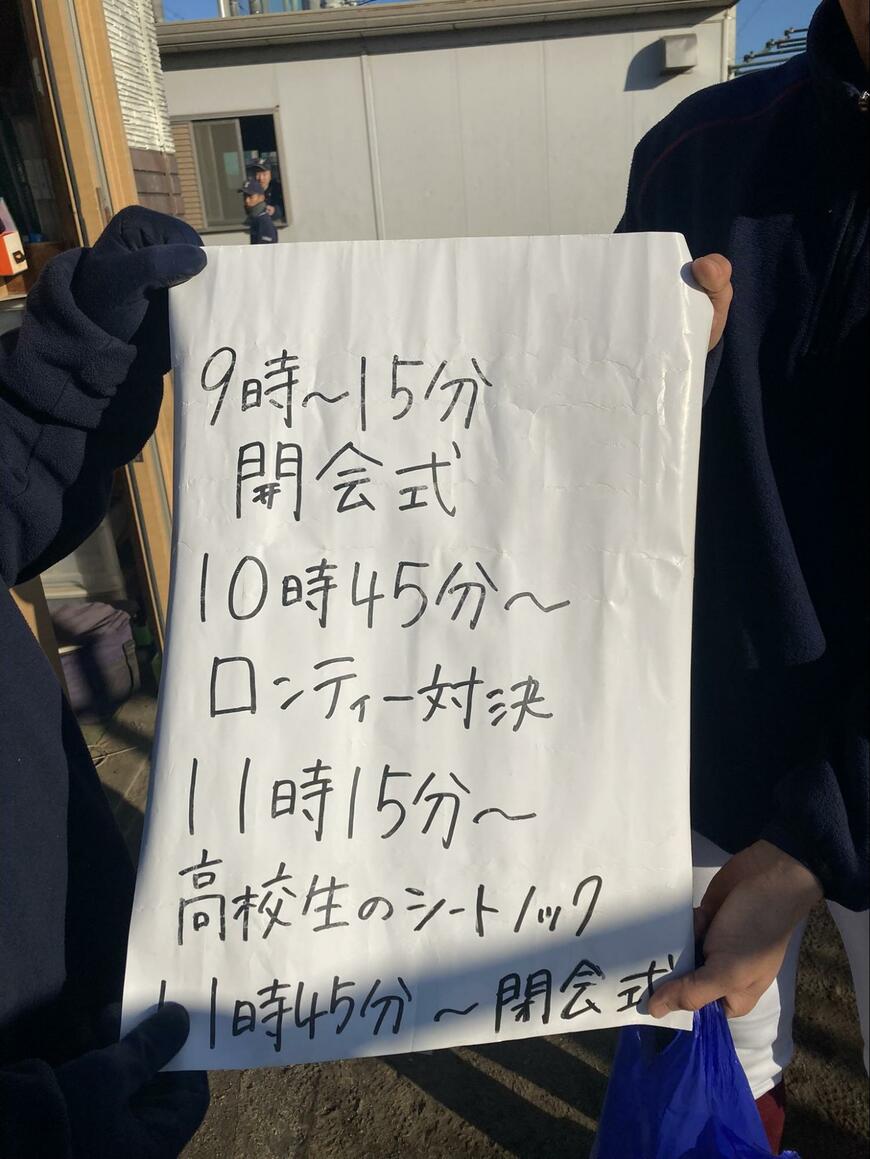 9時～15分
開会式
10時45分～
ロンティー対決
11時15分～
高校生のシートノック
11時45分～閉会式